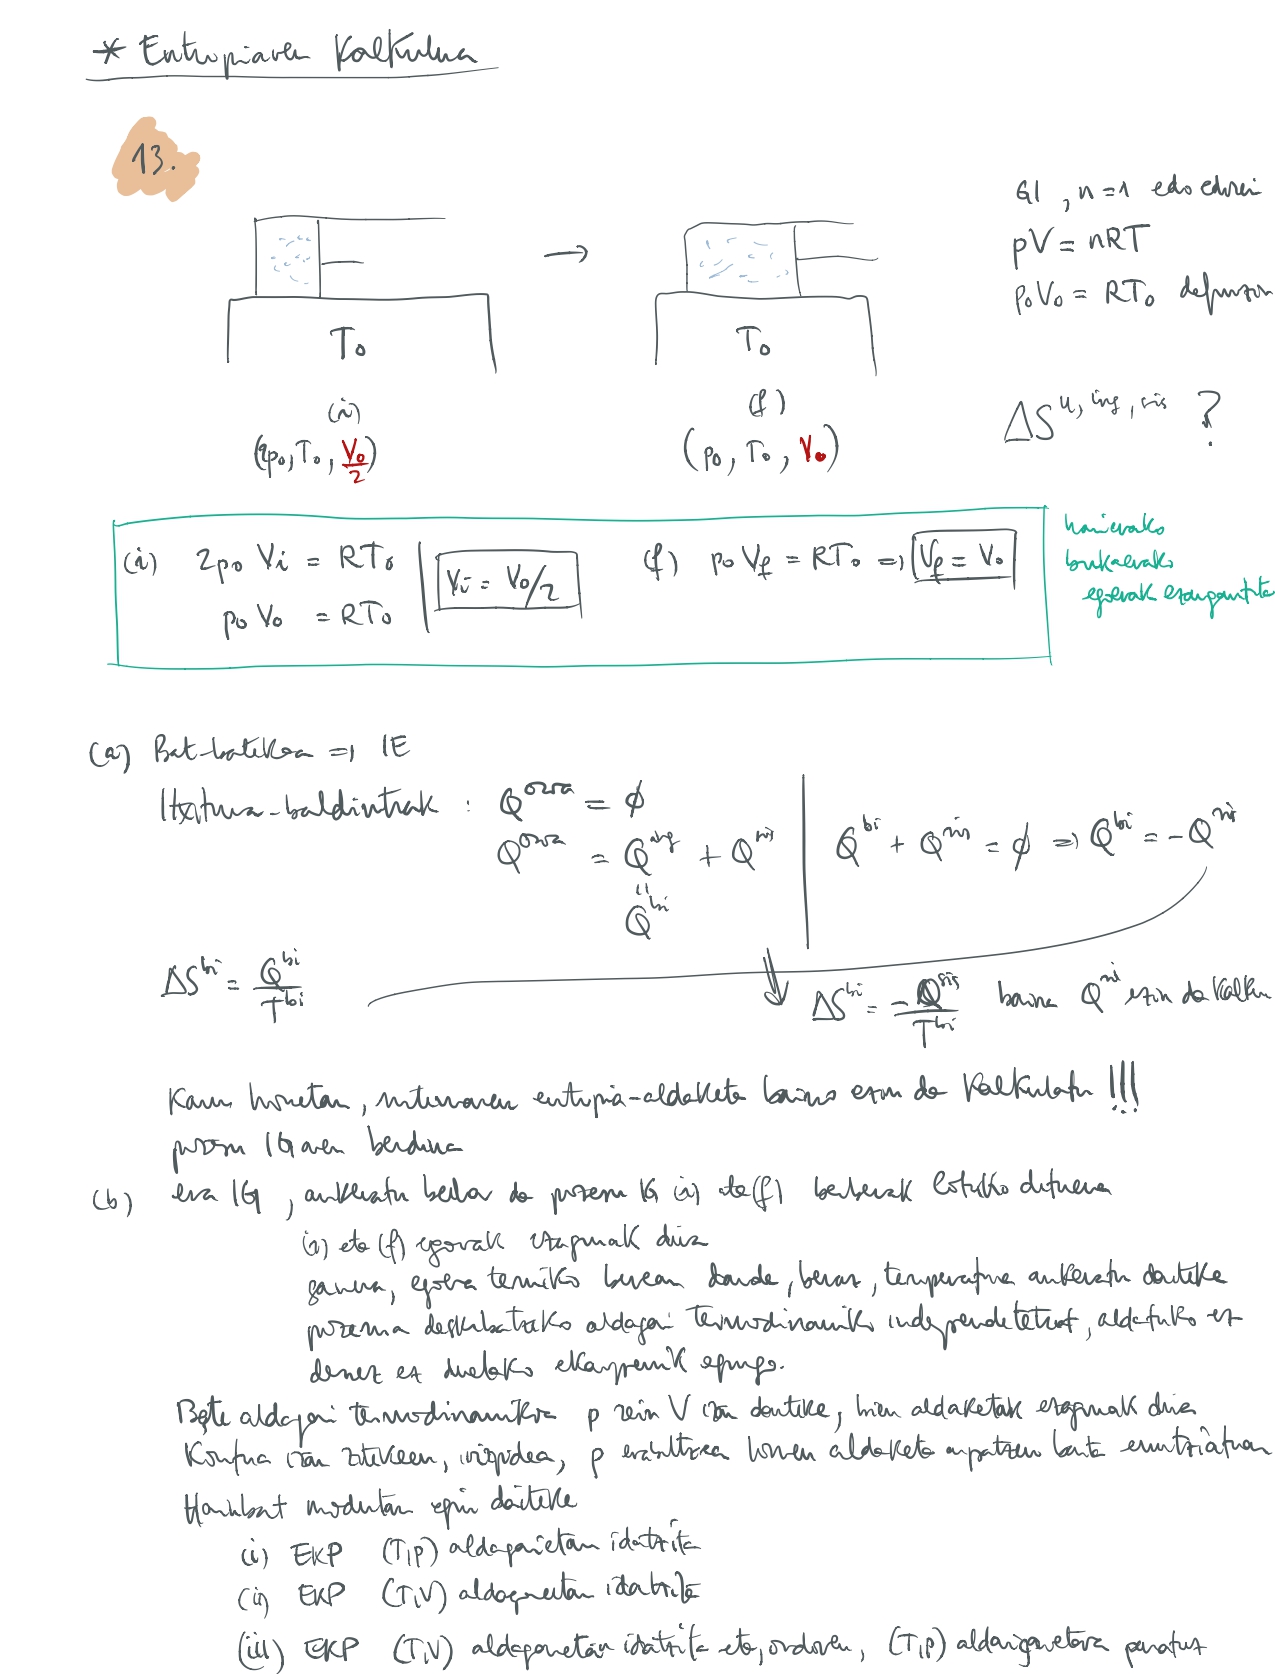 * Entropiaren kalkulua
13.
GI, n=1 edo edozein
pV = nRT
p₀V₀ = RT₀ definizioz
→
T₀
T₀
(i)
(f)
(2p₀, T₀, V₀/2)
(p₀, T₀, V₀)
ΔS^{u, ing, sis} ?
(i) 2p₀ Vi = RT₀
Vi = V₀/2
p₀ V₀ = RT₀
(f) p₀ Vf = RT₀ => Vf = V₀
hasierako
bukaerako
egoerak ezagututa
(a) Bat-batekoa => IE
Itxitura-baldintzak : Q^{osoa} = ϕ
Q^{osoa} = Q^{ing} + Q^{sis}
Q^{bi}
Q^{bi} + Q^{sis} = ϕ => Q^{bi} = -Q^{sis}
ΔS^{bi} = Q^{bi}/T^{bi}
ΔS^{bi} = -Q^{sis}/T^{bi} baina Q^{sis} ezin da kalku
Kasu honetan, sistemaren entropia-aldaketa baino ezin da kalkulatu !!!
prozesu IGaren berdina
(b) era IG, aukeratu behar da prozesu IG (i) eta (f) berberak lotuko dituena
(i) eta (f) egoerak ezagunak dira
gainera, egoera termiko berean daude, beraz, temperatura aukeratu daiteke
prozesua deskribatzeko aldagai termodinamiko independetetzat, aldatuko ez
denez ez duelako ekarpenik egingo.
Beste aldagai termodinamikoa p zein V izan daiteke, bien aldaketak ezagunak dira
Konfua izan zitekeen, p erabiltzea honen aldaketa aipatzen baita enuntziatuan
Hainbat modutan egin daiteke
(i) EKP (T,P) aldagaietan idatzita
(ii) EKP (T,V) aldagaietan idatzita
(iii) EKP (T,V) aldagaietan idatzita eta, ondoren, (T,P) aldaigaietara pasatuz